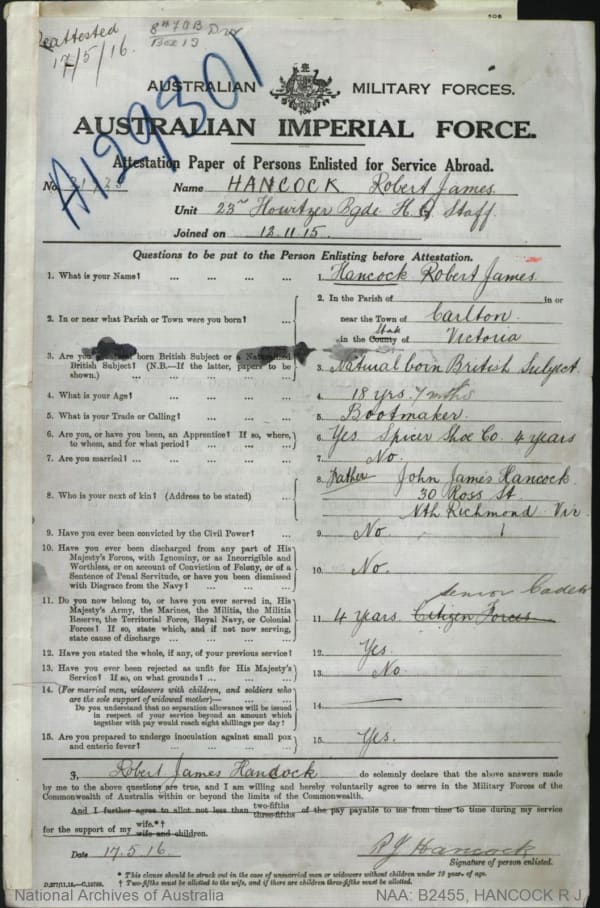 Reattested
17/5/16.
A129301
AUSTRALIAN MILITARY FORCES.
AUSTRALIAN IMPERIAL FORCE.
Attestation Paper of Persons Enlisted for Service Abroad.
No. Name HANCOCK Robert James.
Unit 23rd Howitzer Bgde H.Q. Staff.
Joined on 12.11.15.
Questions to be put to the Person Enlisting before Attestation.
1. What is your Name? ... ... ... ... 1. Hancock Robert James.
2. In or near what Parish or Town were you born? ... 2. In the Parish of in or
near the Town of Carlton.
State
in the County of Victoria
3. Are you born British Subject or a Naturalized
British Subject? (N.B.—If the latter, papers to be
shown.) ... ... ... ... 3. Natural born British Subject
4. What is your Age? ... ... ... ... 4. 18 yrs. 7 mths
5. What is your Trade or Calling? ... ... ... 5. Bootmaker.
6. Are you, or have you been, an Apprentice? If so, where,
to whom, and for what period? ... ... ... 6. Yes Spicer Shoe Co. 4 years
7. Are you married? ... ... ... ... 7. No.
8. Who is your next of kin? (Address to be stated) ... 8. Father John James Hancock
30 Ross St.
Nth Richmond Vic
9. Have you ever been convicted by the Civil Power? ... 9. No.
10. Have you ever been discharged from any part of His
Majesty's Forces, with Ignominy, or as Incorrigible and
Worthless, or on account of Conviction of Felony, or of a
Sentence of Penal Servitude, or have you been dismissed
with Disgrace from the Navy? ... ... ... 10. No.
11. Do you now belong to, or have you ever served in, His
Majesty's Army, the Marines, the Militia, the Militia
Reserve, the Territorial Force, Royal Navy, or Colonial
Forces? If so, state which, and if not now serving,
state cause of discharge ... ... ... 11. 4 years. Citizen Forces Senior Cadets
12. Have you stated the whole, if any, of your previous service? 12. Yes.
13. Have you ever been rejected as unfit for His Majesty's
Service? If so, on what grounds? ... ... 13. No.
14. (For married men, widowers with children, and soldiers who
are the sole support of widowed mother)—
Do you understand that no separation allowance will be issued
in respect of your service beyond an amount which
together with pay would reach eight shillings per day? 14. —
15. Are you prepared to undergo inoculation against small pox
and enteric fever? ... ... ... ... 15. Yes.
I, Robert James Hancock do solemnly declare that the above answers made
by me to the above questions are true, and I am willing and hereby voluntarily agree to serve in the Military Forces of the
Commonwealth of Australia within or beyond the limits of the Commonwealth.
And I further agree to allot not less than two-fifths three-fifths of the pay payable to me from time to time during my service
for the support of my wife.*† wife and children.
Date 17.5.16. R J Hancock
Signature of person enlisted.
* This clause should be struck out in the case of unmarried men or widowers without children under 18 years of age.
† Two-fifths must be allotted to the wife, and if there are children three-fifths must be allotted.
National Archives of Australia NAA: B2455, HANCOCK R J